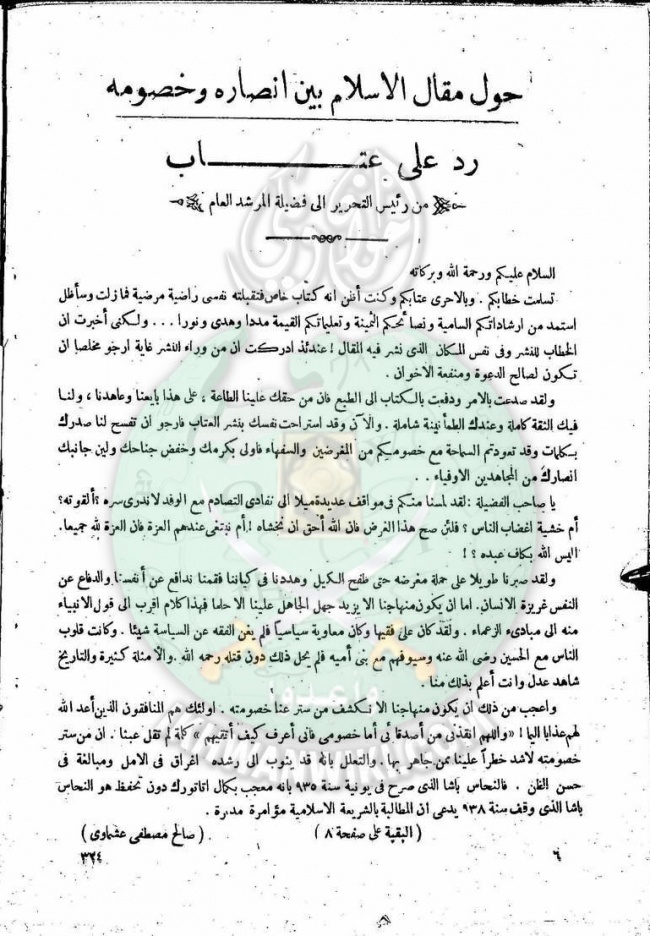 حول مقال الاسلام بين انصاره وخصومه
رد على عتـــــــاب
من رئيس التحرير الى فضيلة المرشد العام
السلام عليكم ورحمة الله وبركاته
تسلمت خطابكم . وبالاحرى عتابكم وكنت أظن انه كتاب خاص فتقبلته نفسى راضية مرضية فما زلت وسأظل
استمد من ارشاداتكم السامية ونصائحكم الثمينة وتعليماتكم القيمة مددا وهدى ونورا . . . ولكنى أخبرت ان
الخطاب للنشر وفى نفس المكان الذى نشر فيه المقال ! عندئذ ادركت ان من وراء النشر غاية ارجو مخلصا ان
تكون لصالح الدعوة ومنفعة الاخوان .
ولقد صدعت بالامر ودفعت بالكتاب الى الطبع فان من حقك علينا الطاعة ، على هذا بايعنا وعاهدنا ، ولنا
فيك الثقة كاملة وعندك الطمأنينة شاملة . والآن وقد استراحت نفسك بنشر العتاب فارجو ان تفسح لنا صدرك
بكلمات وقد تعودتم السماحة مع خصوميكم من المغرضين والسفهاء فاولى بكرمك وخفض جناحك ولين جانبك
انصارك من المجاهدين الاوفياء . .
يا صاحب الفضيلة : لقد لمسنا منكم فى مواقف عديدة ميلا الى تفادى التصادم مع الوفد لا ندرى سره ؟ ألقوته ؟
أم خشية اغضاب الناس ؟ فلئن صح هذا الفرض فان الله أحق ان نخشاه ! أم نبتغى عندهم العزة فان العزة لله جميعا.
اليس الله بكاف عبده ؟ !
ولقد صبرنا طويلا على حملة مغرضه حتى طفح الكيل وهددنا فى كياننا فقمنا ندافع عن أنفسنا والدفاع عن
النفس غريزة الانسان. اما ان يكون منهاجنا الا يزيد جهل الجاهل علينا الا حلما فهذا كلام اقرب الى قول الانبياء
منه الى مبادىء الزعماء . ولقد كان على فقيها وكان معاوية سياسياً فلم يغن الفقه عن السياسة شيئا . وكانت قلوب
الناس مع الحسين رضى الله عنه وسيوفهم مع بنى أميه فلم يحل ذلك دون قتله رحمه الله .والأمثلة كثيرة والتاريخ
شاهد عدل وانت أعلم بذلك منا .
واعجب من ذلك ان يكون منهاجنا الا نكشف من ستر عنا خصومته . اولئك هم المنافقون الذين أعد الله
لهم عذابا اليما ! «واللهم انقذنى من أصدقائى أما خصومى فانى أعرف كيف أتقيهم » كلمة لم تقل عبثا . ان من ستر
خصومته لاشد خطراً علينا ممن جاهر بها. والتعلل بانه قد يئوب الى رشده اغراق فى الامل ومبالغة فى
حسن الظن . فالنحاس باشا الذى صرح فى يونية سنة ٩٣٥ بانه معجب بكمال اتاتورك دون تحفظ هو النحاس
باشا الذى وقف سنة ٩٣٨ يدعى ان المطالبة بالشريعة الاسلامية مؤامرة مدبرة .
( البقية على صفحة ٨ ) ( صالح مصطفى عشماوى )
٦ ٣٢٤
وأعدوا
IKHWANWIKI.COM